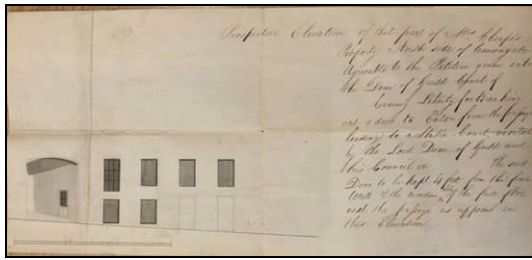 Perspective Elevation of that part of Mrs
Property North side of Canongate
Agreeable to the Petition given into
the Dean of Guild Court of
Craving Liberty for
out a door to Enter from the passage
leading to a Stable Court
by the Lord Dean of Guild and
his Council on The said
Door to be kept 4 feet from the
Wall & the window of the first floor
next the passage as appears in
this Elevation